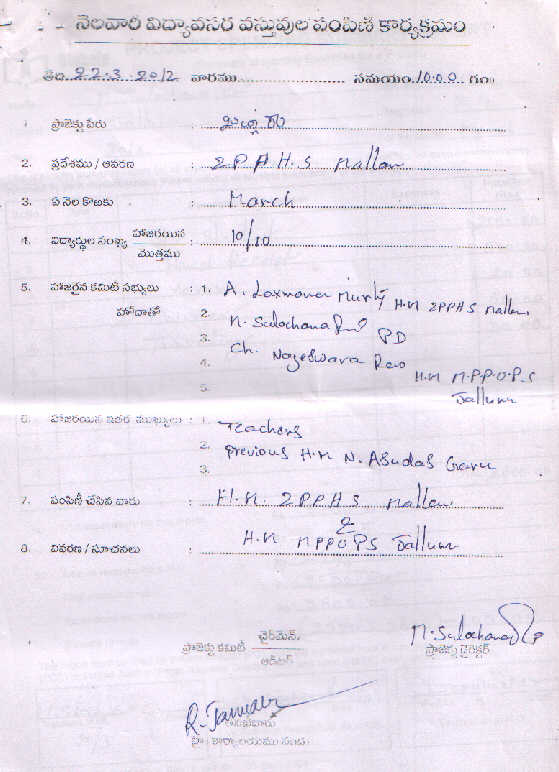 నెలవారి విద్యావసర వస్తువుల పంపిణి కార్యక్రమం
తేది 22.3 2012 వారము.................. సమయం.10.00 గం॥
1. ప్రాజెక్టు పేరు :
2. ప్రదేశము / ఆవరణ : ZPPHS Nallam
3. ఏ నెల కొరకు : March
4. విద్యార్థుల సంఖ్య హాజరయిన : 10/10
మొత్తము
5. హాజరైన కమిటీ సభ్యులు : 1. A. Laxmana Murty H.M ZPPHS Nallam
హోదాతో 2. M. Sulochana PD
3. Ch. Nageswara Rao
4. H.M M.P.P.U.P.S
5. Jallum
6. హాజరయిన ఇతర ముఖ్యులు : 1. Teachers
2. Previous H.M N. Asudas Garu
3.
7. పంపిణీ చేసిన వారు : H.M. ZPPHS Nallam
&
8. వివరణ / సూచనలు : H.M MPPUPS Jallum
ప్రాజెక్టు కమిటీ ఛైర్మెన్.
ఆడిటర్
M. Sulochana
ప్రాజెక్టు డైరెక్టర్